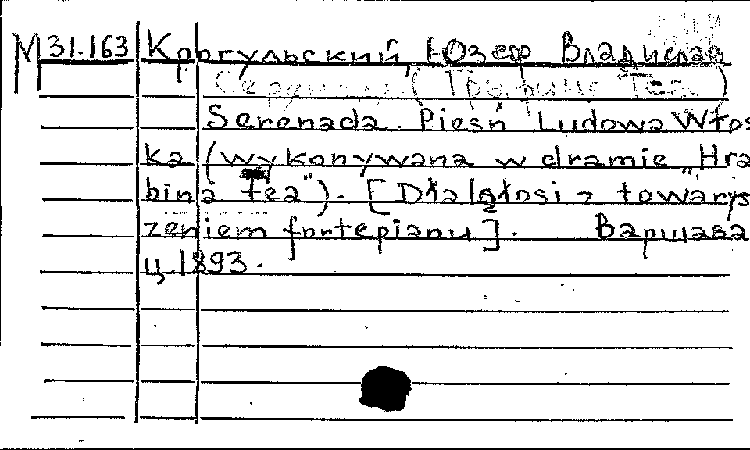 М 31-163 Кржгульский, Юзеф Владислав
(Графиня Теа)
Serenada. Pieśń Ludowa Włos
ka (wykonywana w dramie „Hra
bina tea"). [Dla głosi z towarys
zeniem fortepianu]. Варшава
ц.1893.